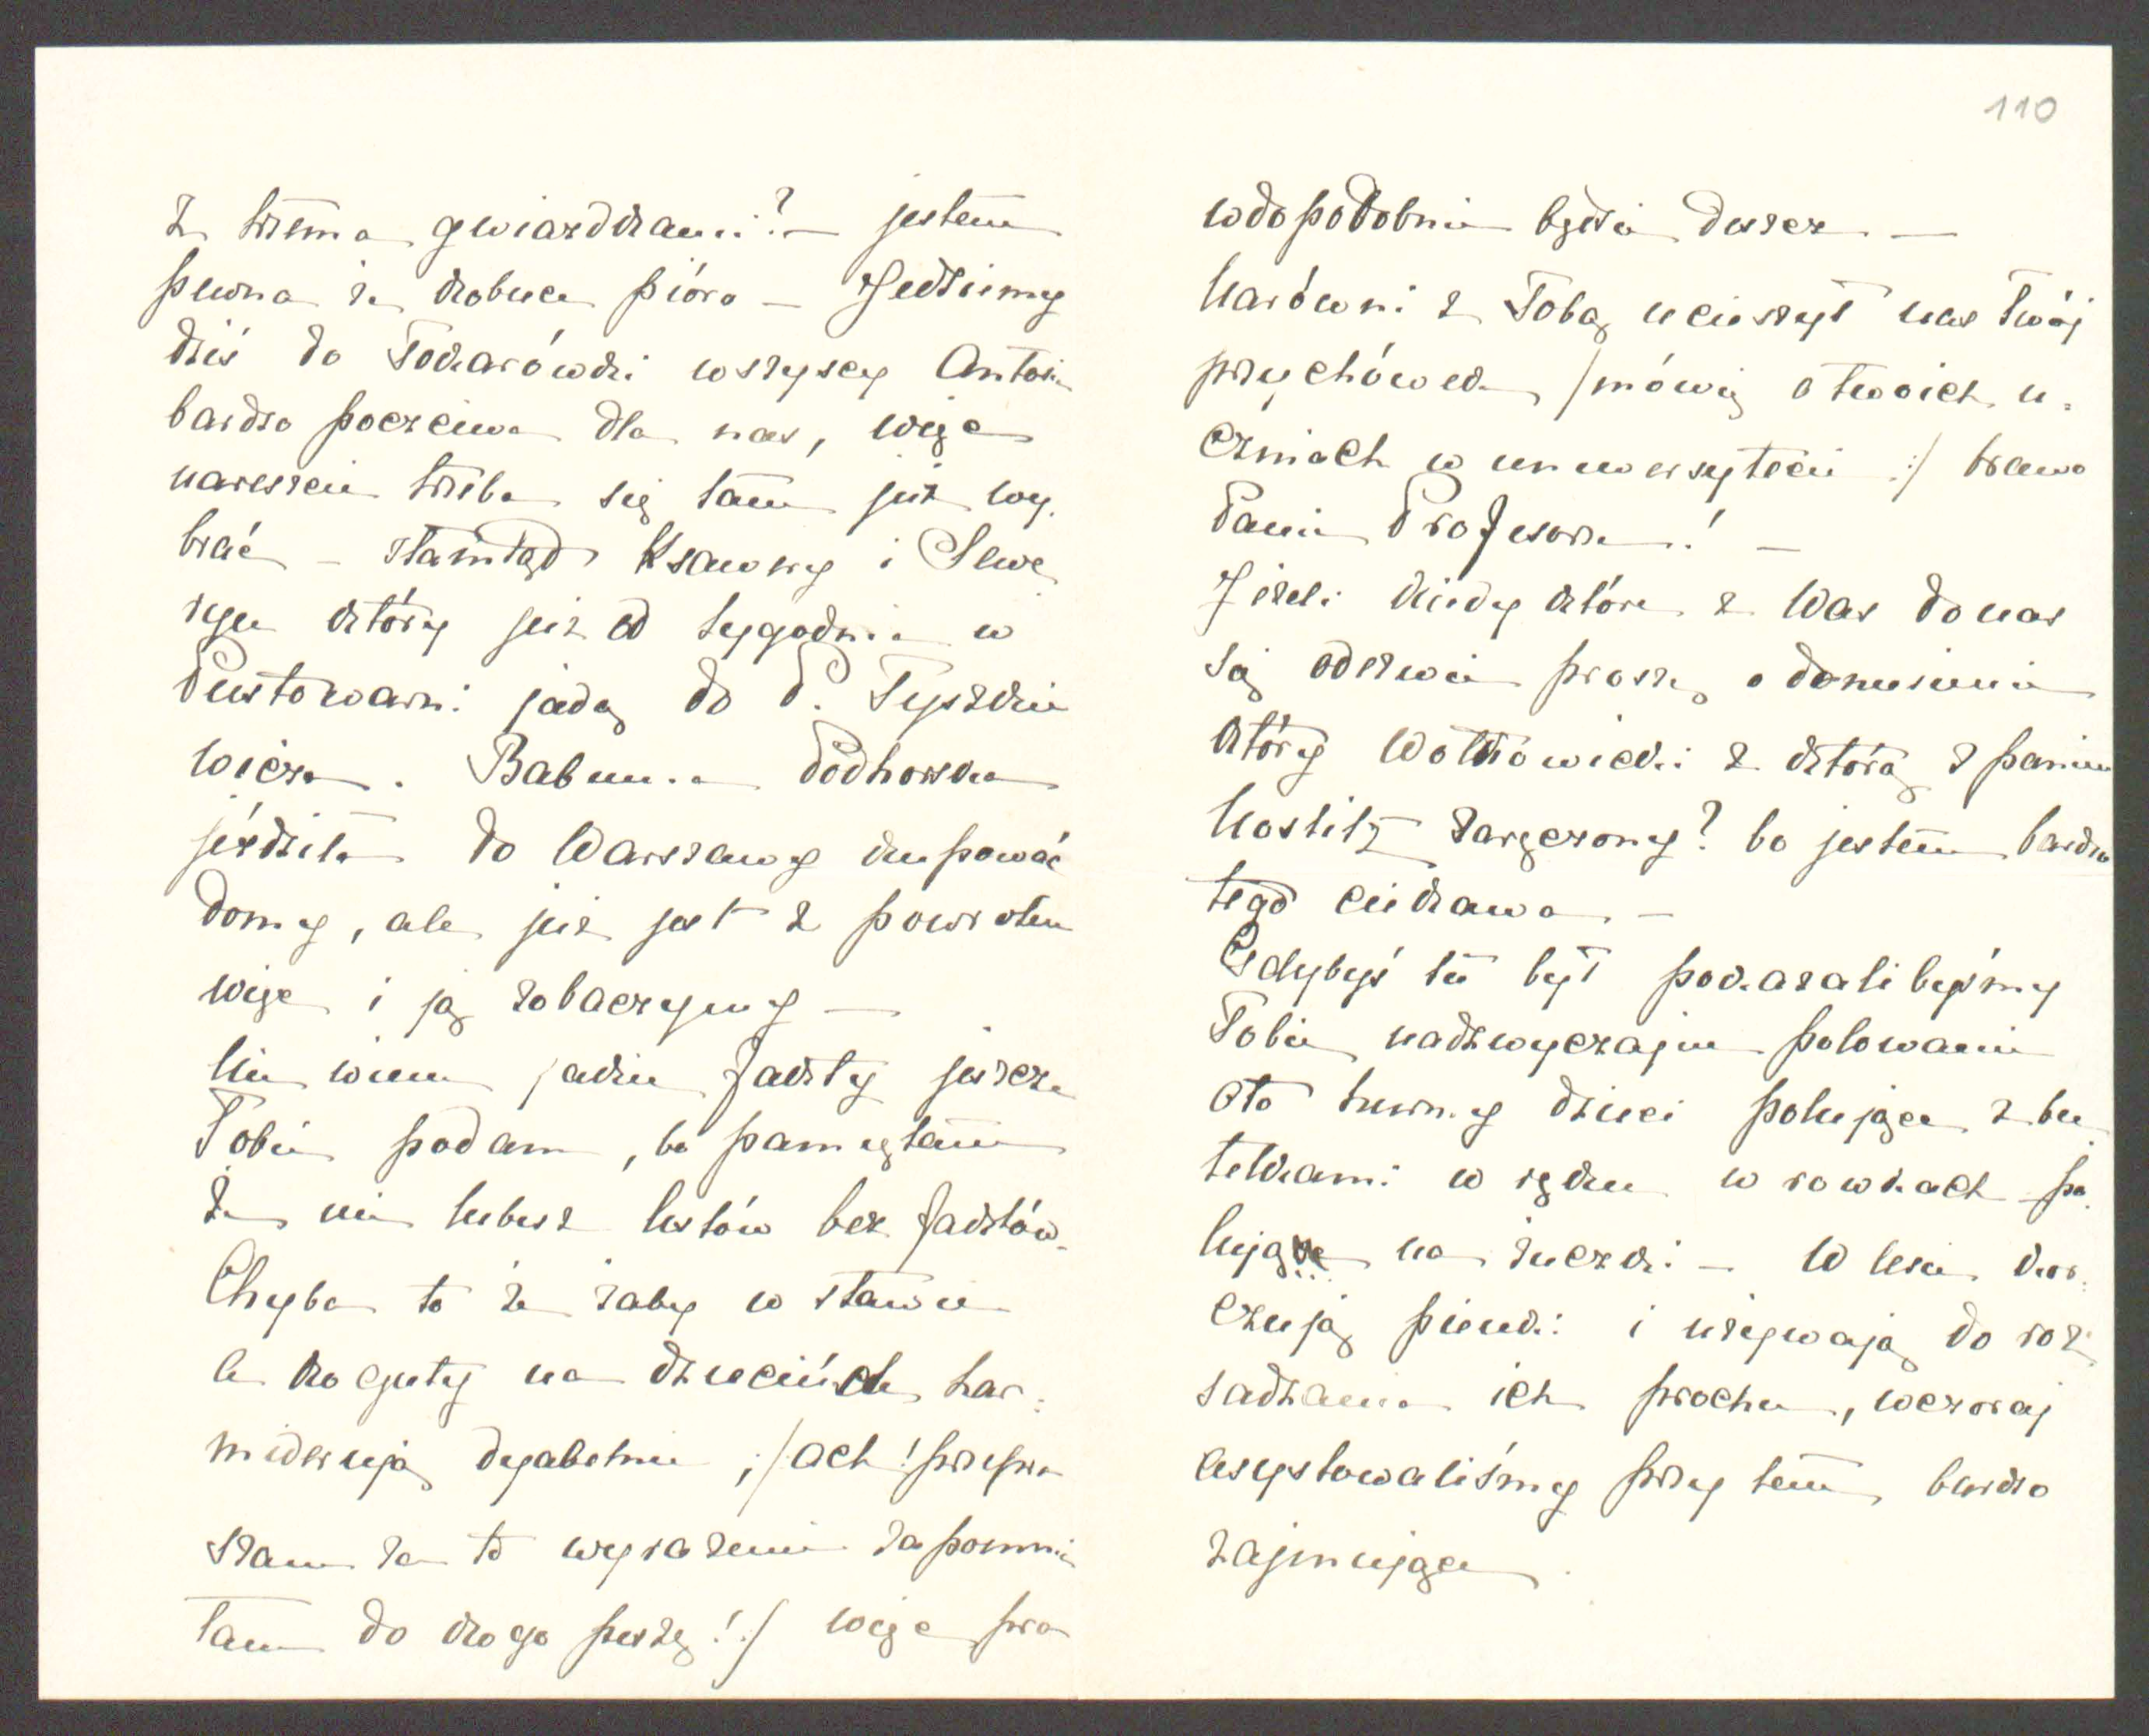 z trzema gwiazdkami? — jestem
pewna że kobiece pióro — Jedziemy
dziś do Tokarówki wszyscy Antosie
bardzo poczciwe dla nas, więc
nareszcie trzeba się tam już wy-
brać — stamtąd Ksawery i Sewe
ryn który już od tygodnia w
Pustowarni jadą do P. Tyszkie
wicza. Babunia Podhorska
jeździła do Warszawy kupować
domy, ale już jest z powrotem
więc i ją zobaczymy —
Nie wiem jakie fakty jeszcze
Tobie podam, bo pamiętam
że nie lubisz listów bez faktów.
Chyba to że żaby w stawie
a koguty na dziecińcu har-
miderują dyabelnie, /ach! przepra
szam za to wyrażenie zapomnia
łam do kogo piszę!/ więc pra
110
wdopodobnie będzie deszcz —
Narówni z Tobą ucieszył nas twój
przychówek /mówię o twoich u-
czniach w uniwersytecie:/ brawo
Panie Profesorze! —
Jeżeli kiedy które z Was do nas
się odezwie proszę o doniesienie
który Wołkowicki z którą z panien
Nostitz zaręczony? bo jestem bardzo
tego ciekawa —
Gdybyś tu był pokazalibyśmy
Tobie nadzwyczajne polowanie
oto tłumy dzieci polujące z bu
telkami w ręku w rowkach po-
lujące na żuczki — W lesie kar-
czują pieńki i używają do roz-
sadzania ich prochu, wczoraj
asystowaliśmy przy tem bardzo
zajmujące.